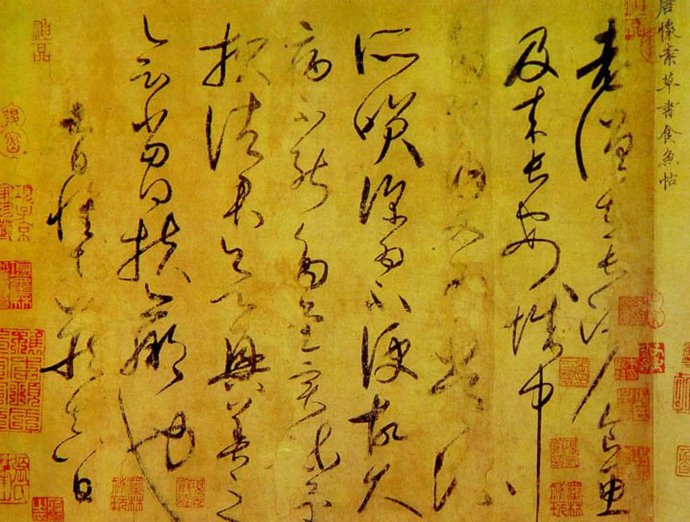 唐懷素草書食魚帖
老僧在長沙食魚
及來長安城中
多食肉又為常流
所笑深為不便故久
病不能多書實疏還
報諸君欲興善之
會當得扶羸也
九日懷素藐真白